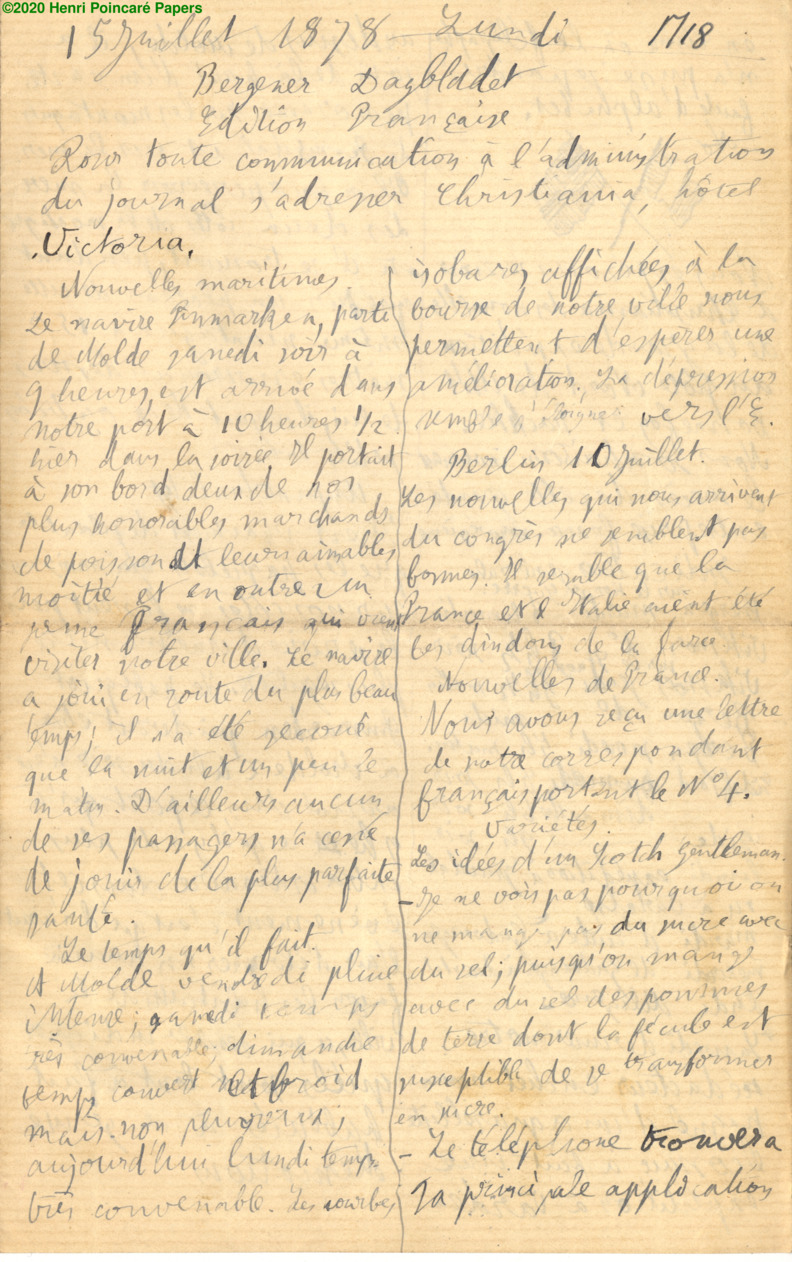 ©2020 Henri Poincaré Papers
15 Juillet 1878 Lundi 17/18
Bergener Dagbladet
Edition Française
Pour toute communication à l'administration
du journal s'adresser Christiania, hôtel
Victoria.
Nouvelles maritimes.
Le navire Finmarken, parti
de Molde samedi soir à
9 heures, est arrivé dans
notre port à 10 heures 1/2
hier dans la soirée Il portait
à son bord deux de nos
plus honorables marchands
de poisson et leurs aimables
moitié et en outre un
jeune français qui vient
visiter notre ville. Le navire
a joui en route du plus beau
temps; il n'a été secoué
que la nuit et un peu le
matin. D'ailleurs aucun
de ses passagers n'a cessé
de jouir de la plus parfaite
santé.
Le temps qu'il fait.
A Molde vendredi pluie
intense; samedi temps
très convenable; dimanche
temps couvert et froid
mais non pluvieux;
aujourd'hui lundi temps
très convenable. Les courbes
isobares affichées à la
bourse de notre ville nous
permettent d'espérer une
amélioration. La dépression
semble s'éloigner vers l'E.
Berlin 10 Juillet.
Les nouvelles qui nous arrivent
du congrès ne semblent pas
bonnes. Il semble que la
France et l'Italie aient été
les dindons de la farce.
Nouvelles de France.
Nous avons reçu une lettre
de notre correspondant
français portant le No 4.
Variétés.
Les idées d'un Scotch gentleman.
- Je ne vois pas pourquoi on
ne mange pas du sucre avec
du sel; puisqu'on mange
avec du sel des pommes
de terre dont la fécule est
susceptible de se transformer
en sucre.
- Le téléphone trouvera
sa principale application